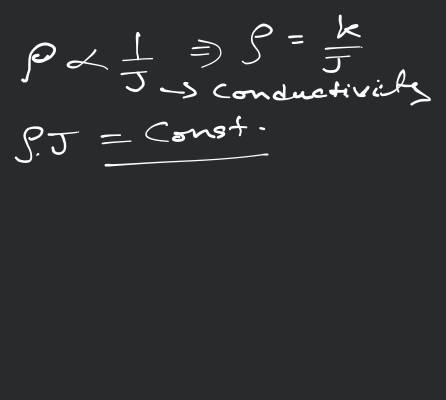 ρ ∝ 1/J ⇒ ρ = k/J
→ conductivity
ρ.J = Const.